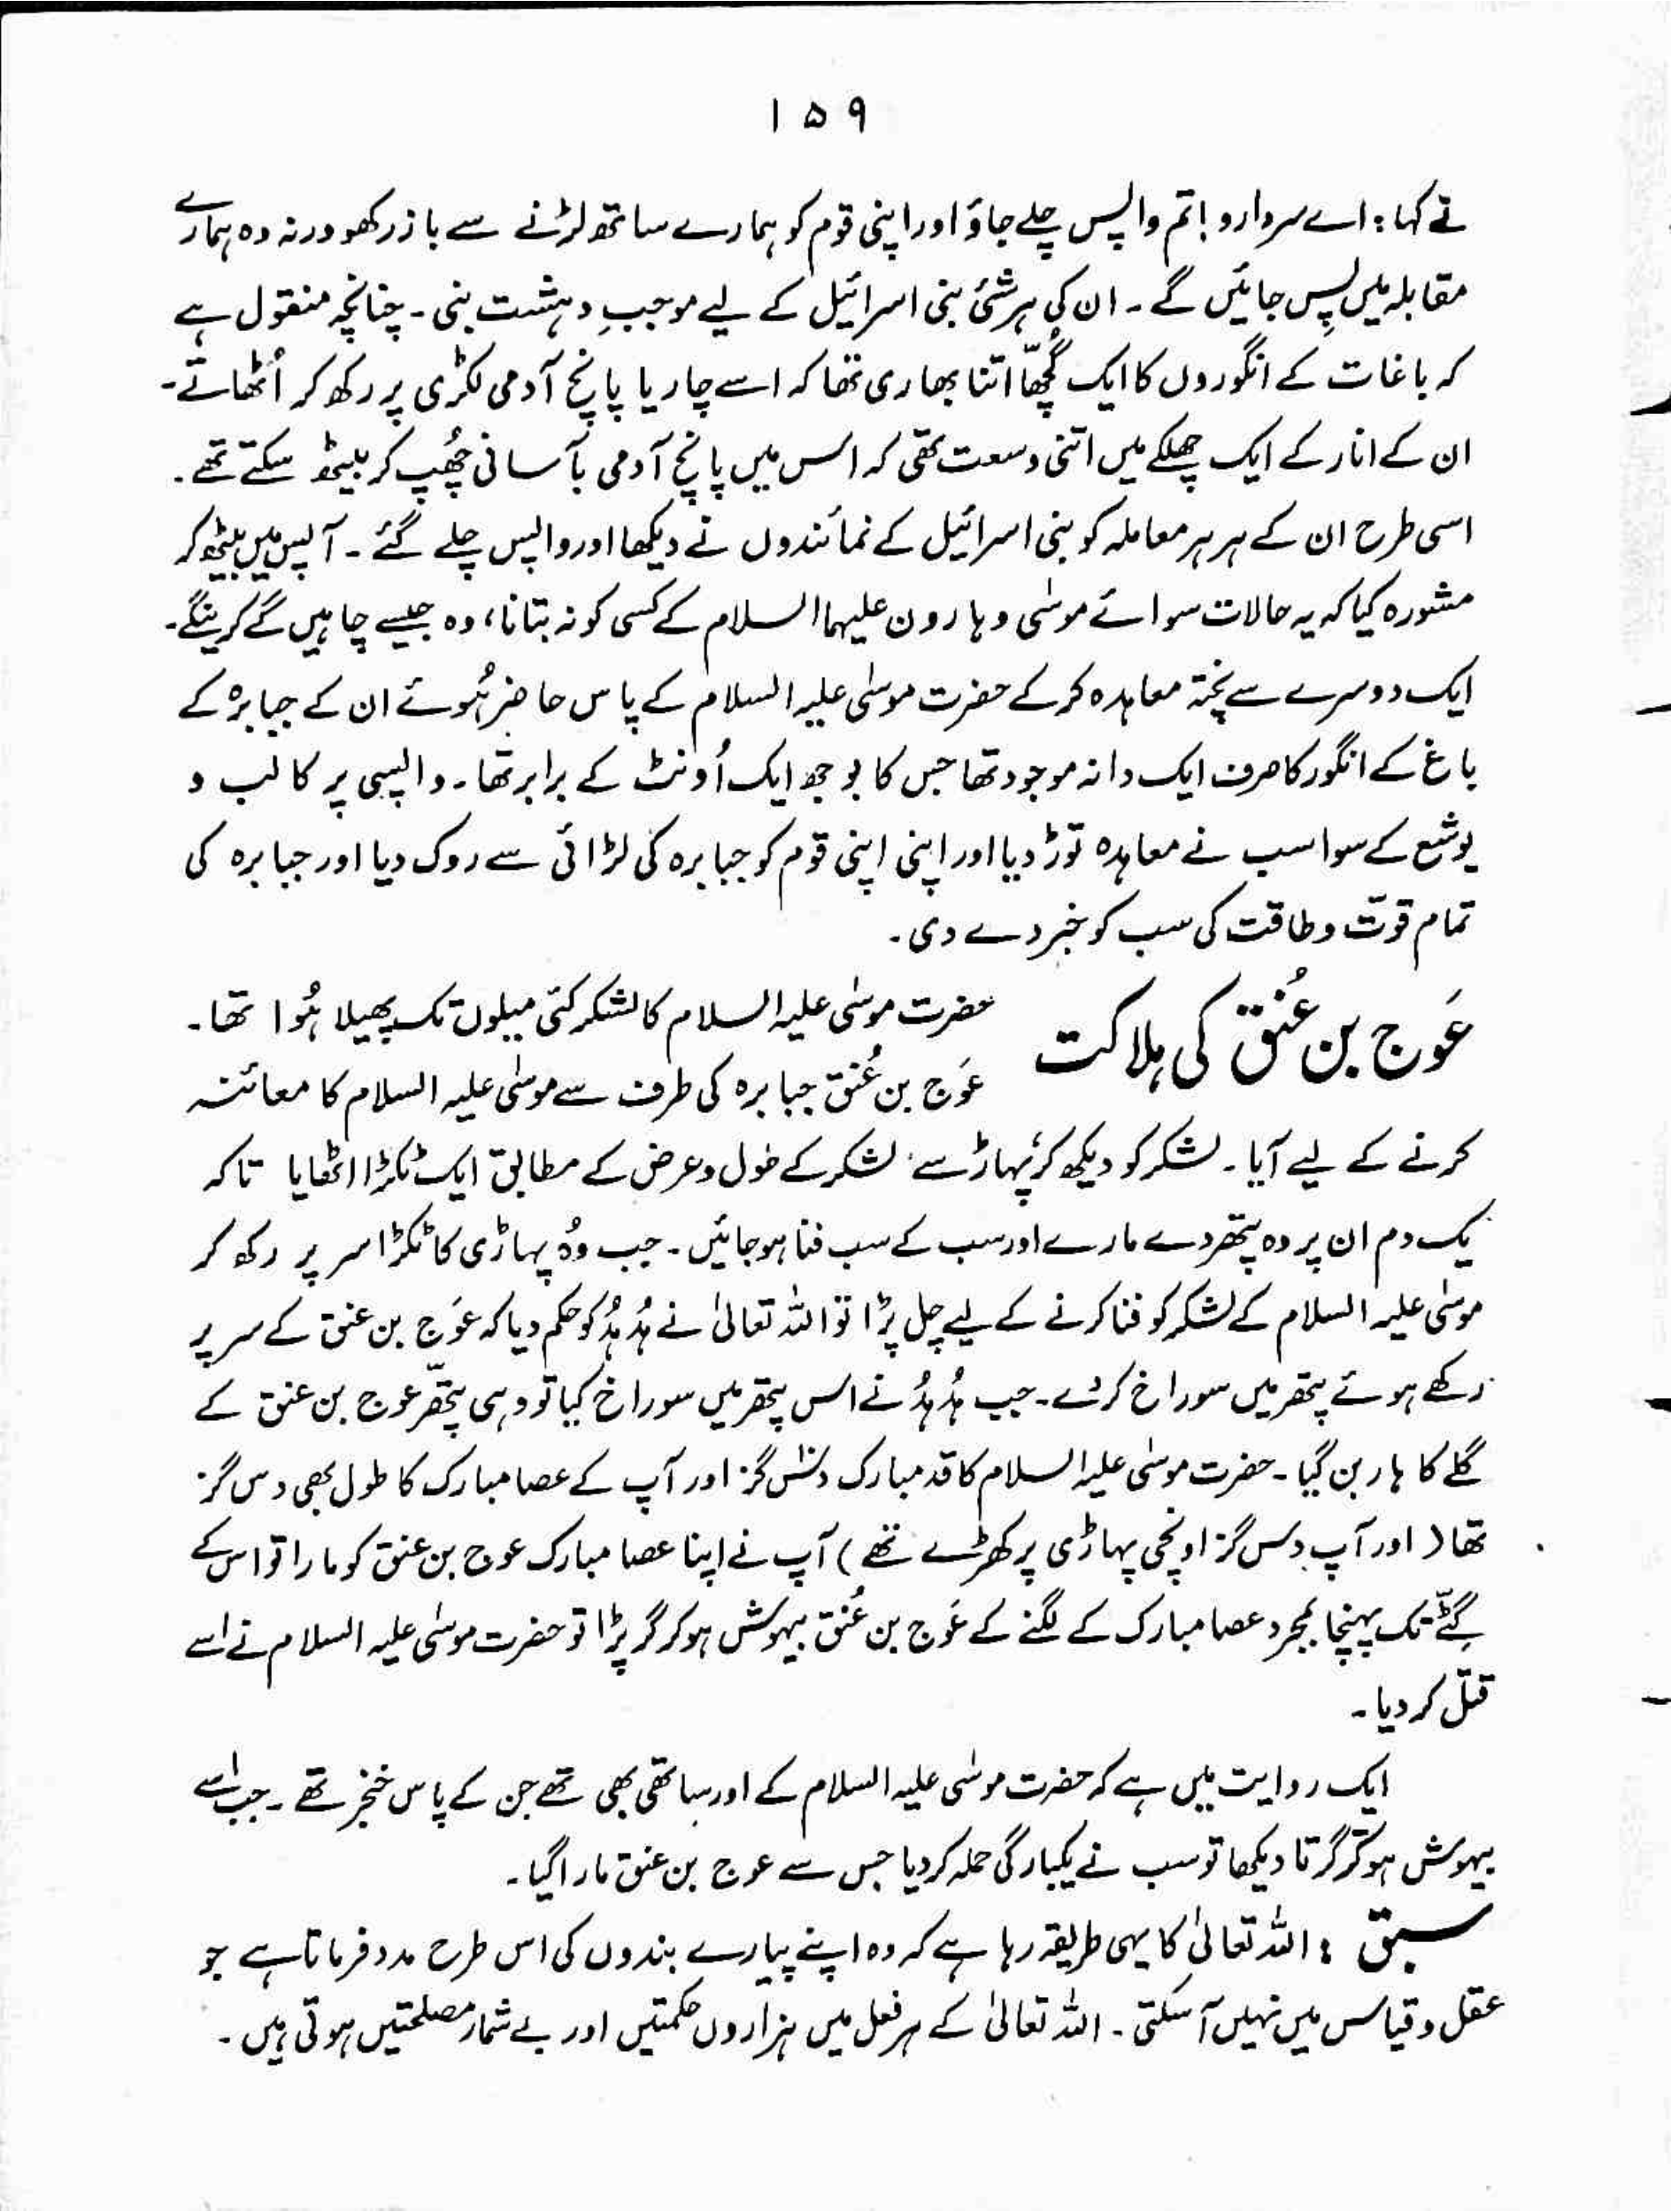 ۱۵۹
نے کہا: اے سردارو! تم واپس چلے جاؤ اور اپنی قوم کو ہمارے ساتھ لڑنے سے باز رکھو ورنہ وہ ہمارے
مقابلہ میں پِس جائیں گے۔ ان کی ہر شئ بنی اسرائیل کے لیے موجبِ دہشت بنی۔ چنانچہ منقول ہے
کہ باغات کے انگوروں کا ایک گُچھّا اتنا بھاری تھا کہ اسے چار یا پانچ آدمی لکڑی پر رکھ کر اُٹھاتے۔
ان کے انار کے ایک چھلکے میں اتنی وسعت تھی کہ اس میں پانچ آدمی بآسانی چُھپ کر بیٹھ سکتے تھے۔
اسی طرح ان کے ہر ہر معاملہ کو بنی اسرائیل کے نمائندوں نے دیکھا اور واپس چلے گئے۔ آپس میں بیٹھ کر
مشورہ کیا کہ یہ حالات سوائے موسٰی و ہارون علیہما السلام کے کسی کو نہ بتانا، وہ جیسے چاہیں گے کرینگے۔
ایک دوسرے سے پختہ معاہدہ کرکے حضرت موسٰی علیہ السلام کے پاس حاضر ہُوئے ان کے جبابرہ کے
باغ کے انگور کا صرف ایک دانہ موجود تھا جس کا بوجھ ایک اُونٹ کے برابر تھا۔ واپسی پر کالب و
یوشع کے سوا سب نے معاہدہ توڑ دیا اور اپنی اپنی قوم کو جبابرہ کی لڑائی سے روک دیا اور جبابرہ کی
تمام قوّت و طاقت کی سب کو خبر دے دی۔
عَوج بن عُنق کی ہلاکت
حضرت موسٰی علیہ السلام کا لشکر کئی میلوں تک پھیلا ہُوا تھا۔
عَوج بن عُنق جبابرہ کی طرف سے موسٰی علیہ السلام کا معائنہ
کرنے کے لیے آیا۔ لشکر کو دیکھ کر پہاڑ سے لشکر کے طول و عرض کے مطابق ایک ٹکڑا اٹھایا تاکہ
یک دم ان پر وہ پتھر دے مارے اور سب کے سب فنا ہو جائیں۔ جب وُہ پہاڑی کا ٹکڑا سر پر رکھ کر
موسٰی علیہ السلام کے لشکر کو فنا کرنے کے لیے چل پڑا تو اللہ تعالیٰ نے ہُدہُد کو حکم دیا کہ عَوج بن عنق کے سر پر
رکھے ہوئے پتھر میں سوراخ کر دے۔ جب ہُدہُد نے اس پتھر میں سوراخ کیا تو وہی پتھّر عوج بن عنق کے
گلے کا ہار بن گیا۔ حضرت موسٰی علیہ السلام کا قد مبارک دسؔ گز اور آپ کے عصا مبارک کا طول بھی دس گز
تھا (اور آپ دس گز اونچی پہاڑی پر کھڑے تھے) آپ نے اپنا عصا مبارک عوج بن عنق کو مارا تو اس کے
گِٹّے تک پہنچا بمجرد عصا مبارک کے لگنے کے عَوج بن عُنق بیہوش ہو کر گر پڑا تو حضرت موسٰی علیہ السلام نے اسے
قتل کر دیا۔
ایک روایت میں ہے کہ حضرت موسٰی علیہ السلام کے اور ساتھی بھی تھے جن کے پاس خنجر تھے۔ جب اسے
بیہوش ہو کر گرتا دیکھا تو سب نے یکبارگی حملہ کر دیا جس سے عوج بن عنق مارا گیا۔
سبق: اللہ تعالیٰ کا یہی طریقہ رہا ہے کہ وہ اپنے پیارے بندوں کی اس طرح مدد فرماتا ہے جو
عقل و قیاس میں نہیں آ سکتی۔ اللہ تعالیٰ کے ہر فعل میں ہزاروں حکمتیں اور بے شمار مصلحتیں ہوتی ہیں۔